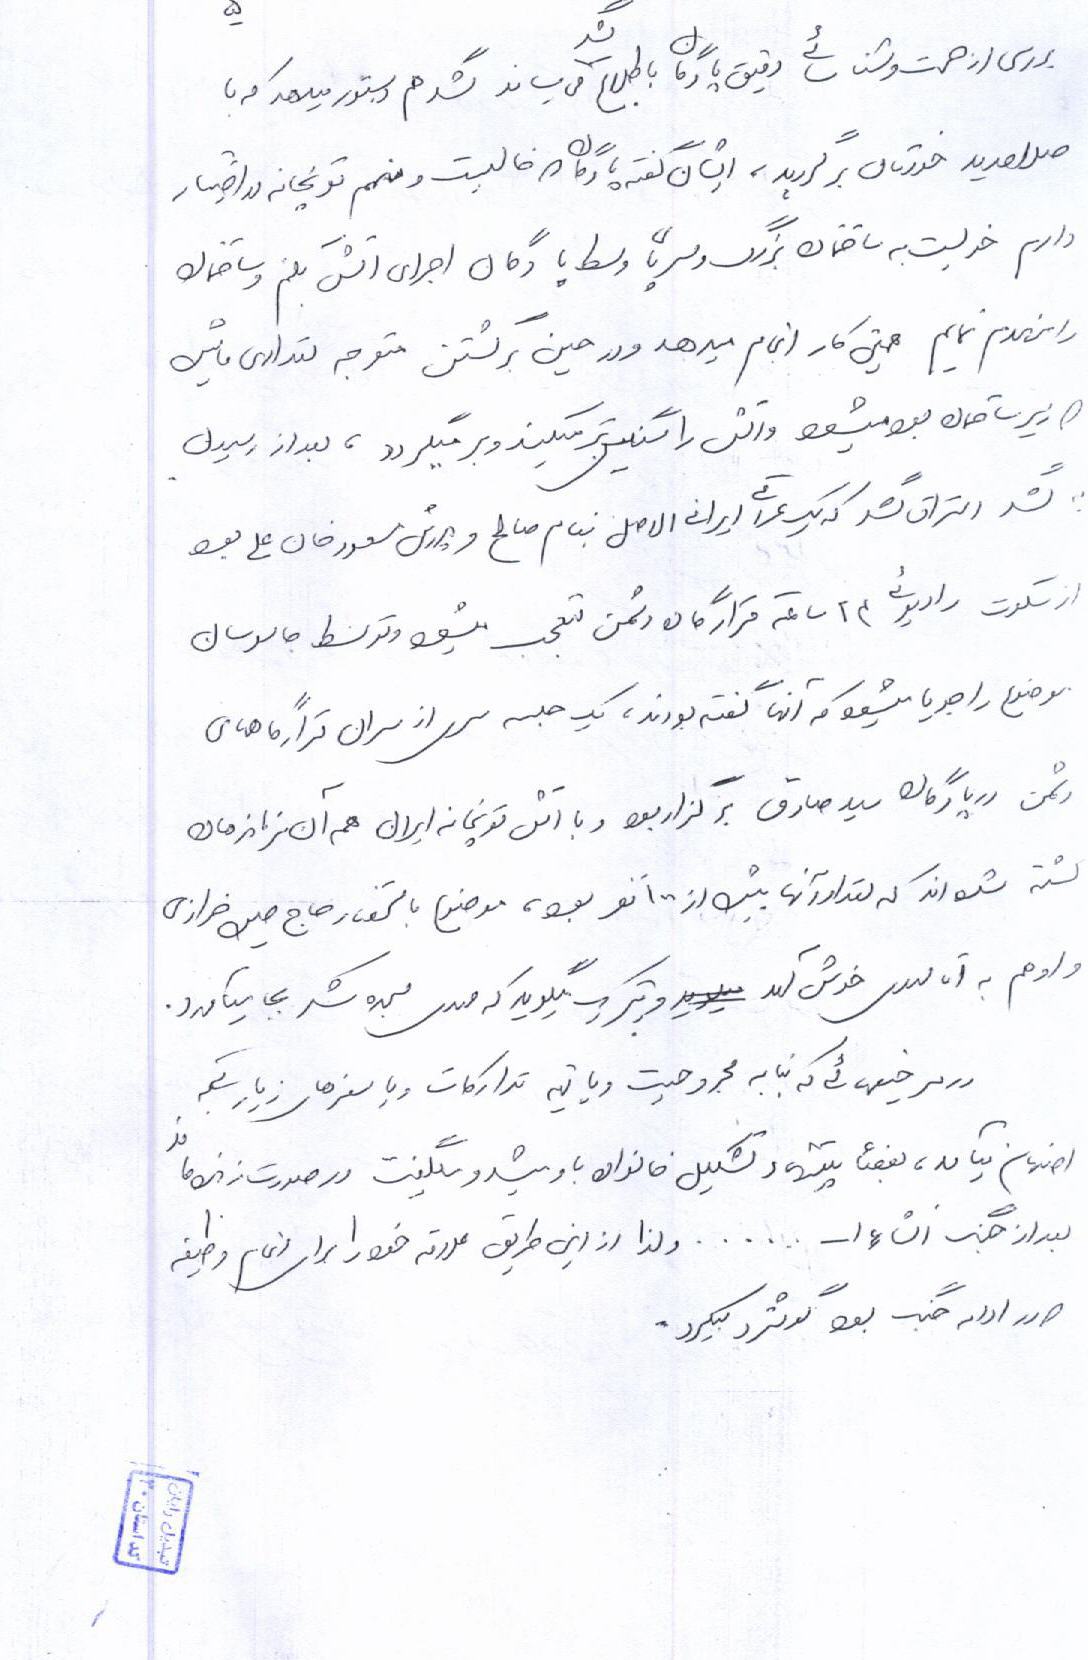 بررسی از صحت و شناسائی دقیق پادگان باطلاع گشت می رساند گشت هم دستور میدهد که با
صلاحدید خودتان برگردید، ایشان گفته پادگان خالیست و منهم توپخانه در اختیار
دارم خوبست به ساختمان بزرگ وسط پادگان اجرای آتش بکنم و ساختمان
را منهدم نمایم همین کار انجام میدهد و در حین برگشتن متوجه تعدادی ماشین
زیر ساختمان بود میشود و آتش را سنگین تر میکند و بر میگردد، بعد از رسیدن
گشت که یک عراقی ایرانی الاصل بنام صالح و پدرش مسعود خان علی بود
از سکوت رادیوئی ۲۴ ساعته قرارگاه دشمن متعجب میشود و توسط جاسوسان
موضوع را جویا میشود که آنها گفته بودند، یک جلسه سری از سران قرارگاههای
دشمن در پادگان سید صادق برگزار بود و با آتش توپخانه ایران همه آن فرماندهان
کشته شده اند که تعداد آنها بیش از ۱۰۰ نفر بود، موضوع با حاج حسین خرازی
و او هم به آقا مهدی خوش آمد و تبریک میگوید که مهدی سجده شکر بجا میآورد.
در مرخصیهائی که بنا به مجروحیت و یا تهیه تدارکات و یا سفرهای زیارتی که
اصفهان میآمد، بعضاً پیشنهاد تشکیل خانواده باو میشد و میگفت در صورت زنده ماندن
بعد از جنگ انشاءا... ...... و لذا از این طریق علاقه خود را برای انجام وظیفه
در ادامه جنگ بود گوشزد میکرد.